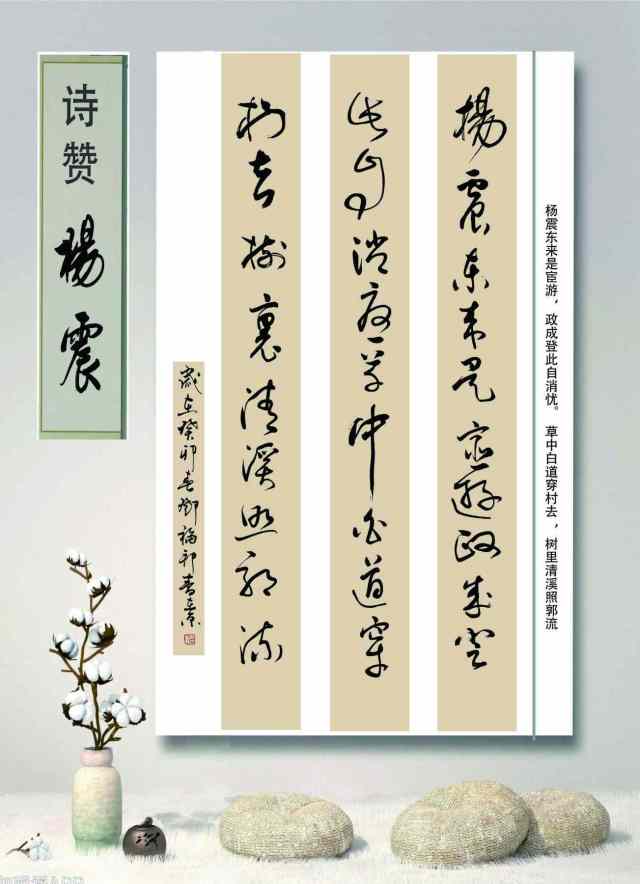 诗赞
楊震
杨震东来是宦游，政成登此自消忧。 草中白道穿村去，树里清溪照郭流
楊震東來是宦遊政成登
此自消憂草中白道穿
村去樹裏清溪照郭流
歲在癸卯春